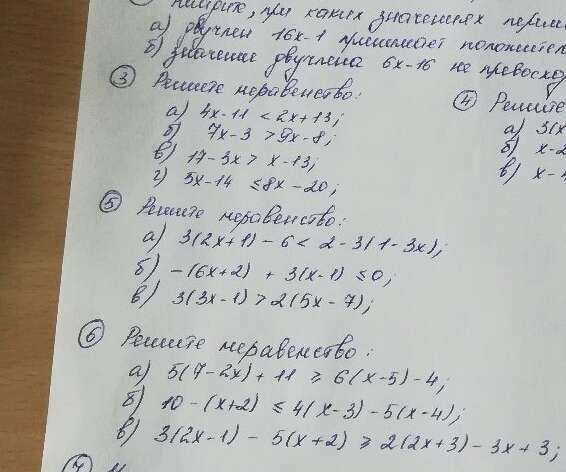 при каких значениях
а) двучлен 16x-1 принимает
б) значение двучлена 6x-16 не
③ Решите неравенство:
а) 4x-11 < 2x+13;
б) 7x-3 > 9x-8;
в) 17-3x > x-13;
г) 5x-14 ≤ 8x-20;
④ Решите
а) 3(x
б) x-2
в) x-
⑤ Решите неравенство:
а) 3(2x+1) - 6 < 2-3(1-3x);
б) -(6x+2) + 3(x-1) ≤ 0;
в) 3(3x-1) > 2(5x-7);
⑥ Решите неравенство:
а) 5(7-2x) + 11 ≥ 6(x-5)-4;
б) 10-(x+2) ≤ 4(x-3)-5(x-4);
в) 3(2x-1) - 5(x+2) ≥ 2(2x+3) - 3x+3;
⑦